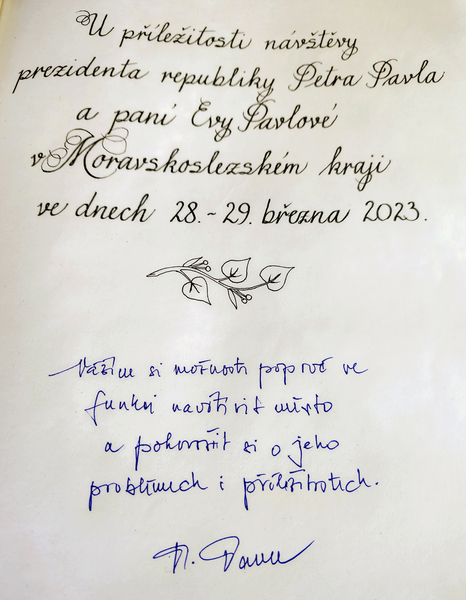 U příležitosti návštěvy
prezidenta republiky Petra Pavla
a paní Evy Pavlové
v Moravskoslezském kraji
ve dnech 28. - 29. března 2023.
Vážím si možnosti poprvé ve
funkci navštívit město
a pohovořit si o jeho
problémech i příležitostech.
P. Pavel